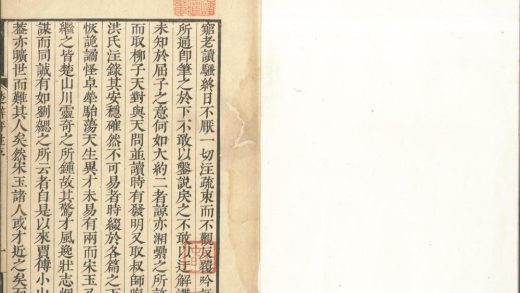 窮老讀騷終日不厭一切注疏束而不觀反覆吟
所通卽筆之於下不敢以鑿説戾之不敢以迂解
未知於屈子之意何如大約二者諒亦湘纍之所
而取柳子天對與天問並讀時有發明又取叔師
洪氏注錄其安穩確然不可易者時綴於各篇之下
恢詭譎怪卓犖駘蕩天生異才未易有兩而宋玉
繼之皆楚山川靈奇之所鍾故其驚才風逸壯志
謀而同誠有如劉勰之所云者自是以來賈傅小山
蓋亦曠世而難其人矣然宋玉諸人或才近之矣而